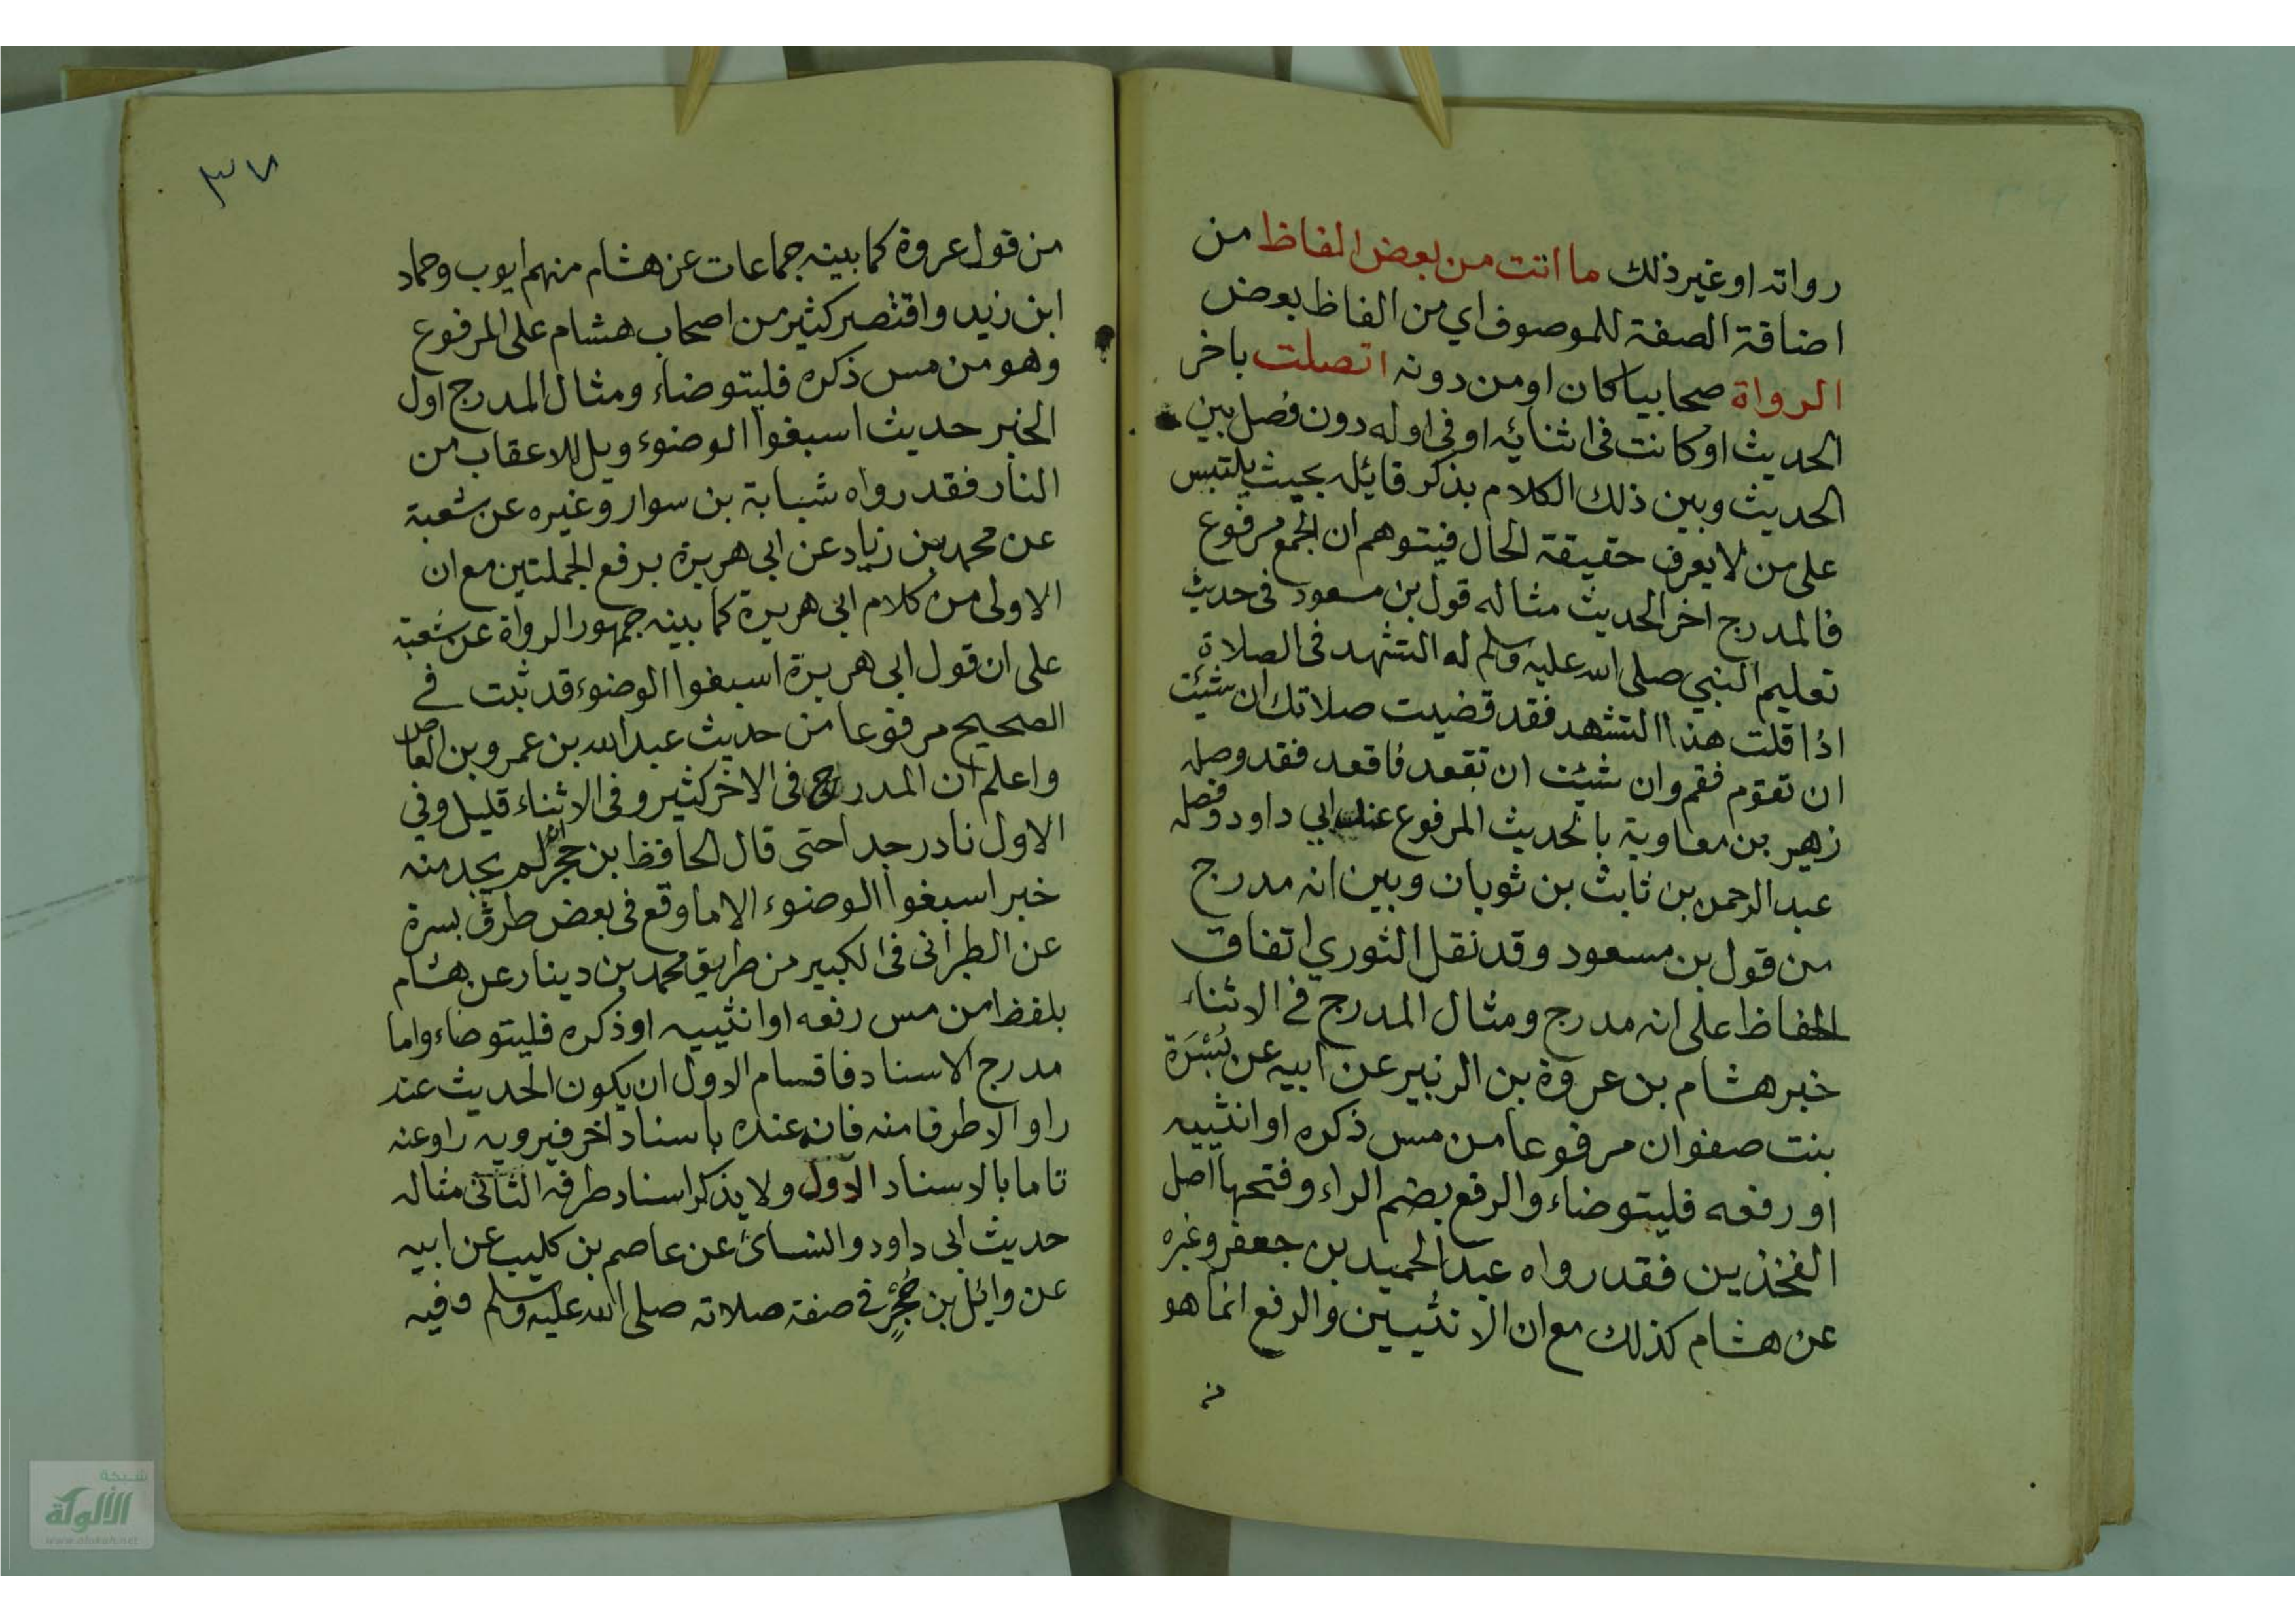 رواته او غير ذلك ما اتت من بعض الفاظ من
اضافة الصفة للموصوف اي من الفاظ بعض
الرواة صحابيا كان او من دونه اتصلت باخر
الحديث او كانت فى اثنائه او فى اوله دون فصل بين
الحديث وبين ذلك الكلام بذكر قائله بحيث يلتبس
على من لا يعرف حقيقة الحال فيتوهم ان الجمع مرفوع
فالمدرج اخر الحديث مثاله قول بن مسعود فى حديث
تعليم النبي صلى الله عليه وسلم له التشهد فى الصلاة
اذا قلت هذا التشهد فقد قضيت صلاتك ان شئت
ان تقوم فقم وان شئت ان تقعد فاقعد فقد وصله
زهير بن معاوية بالحديث المرفوع عند ابي داود وفصله
عبد الرحمن بن ثابث بن ثوبان وبين انه مدرج
من قول بن مسعود وقد نقل الثوري اتفاق
الحفاظ على انه مدرج ومثال المدرج في الاثناء
خبر هشام بن عروة بن الزبير عن ابيه عن بُسْرَة
بنت صفوان مرفوعا من مس ذكره او انثييه
او رفغه فليتوضاء والرفع بضم الراء وفتحها اصل
الفخذين فقد رواه عبد الحميد بن جعفر وغيره
عن هشام كذلك مع ان الانثيين والرفع انما هو
من
٣٧
من قول عروة كما بينه جماعات عن هشام منهم ايوب وحماد
ابن زيد واقتصر كثير من اصحاب هشام على المرفوع
وهو من مس ذكره فليتوضاء ومثال المدرج اول
الخبر حديث اسبغوا الوضوء ويل للاعقاب من
النار فقد رواه شبابة بن سوار وغيره عن شعبة
عن محمد بن زياد عن ابي هريرة برفع الجملتين مع ان
الاولى من كلام ابي هريرة كما بينه جمهور الرواة عن شعبة
على ان قول ابي هريرة اسبغوا الوضوء قد ثبت في
الصحيح مرفوعا من حديث عبد الله بن عمرو بن العاص
واعلم ان المدرج فى الاخر كثير وفى الاثناء قليل وفي
الاول نادر جدا حتى قال الحافظ بن حجر انه لم يجد منه
خبر اسبغوا الوضوء الا ما وقع فى بعض طرق بسرة
عن الطبرانى فى الكبير من طريق محمد بن دينار عن هشام
بلفظ من مس رفغه او انثييه او ذكره فليتوضاء واما
مدرج الاسناد فاقسام الاول ان يكون الحديث عند
راو الا طرفا منه فان عنده باسناد اخر فيرويه راو عنه
تاما بالاسناد الاول ولا يذكر اسناد طرفه الثانى مثاله
حديث ابى داود والنسائ عن عاصم بن كليب عن ابيه
عن وائل بن حُجْرٍ في صفة صلاته صلى الله عليه وسلم وفيه
شبكة
الألوكة
www.alukah.net